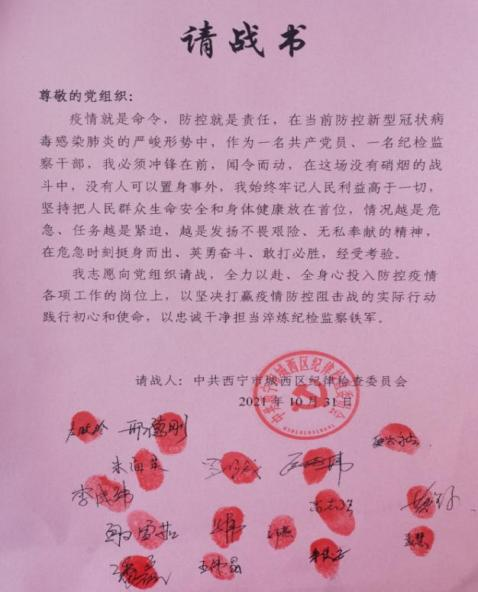 请战书
尊敬的党组织：
疫情就是命令，防控就是责任，在当前防控新型冠状病
毒感染肺炎的严峻形势中，作为一名共产党员、一名纪检监
察干部，我必须冲锋在前，闻令而动，在这场没有硝烟的战
斗中，没有人可以置身事外，我始终牢记人民利益高于一切，
坚持把人民群众生命安全和身体健康放在首位，情况越是危
急、任务越是紧迫、越是发扬不畏艰险、无私奉献的精神，
在危急时刻挺身而出、英勇奋斗、敢打必胜，经受考验。
我志愿向党组织请战，全力以赴、全身心投入防控疫情
各项工作的岗位上，以坚决打赢疫情防控阻击战的实际行动
践行初心和使命，以忠诚干净担当淬炼纪检监察铁军。
请战人：中共西宁市城西区纪律检查委员会
2021年10月31日
邢德刚